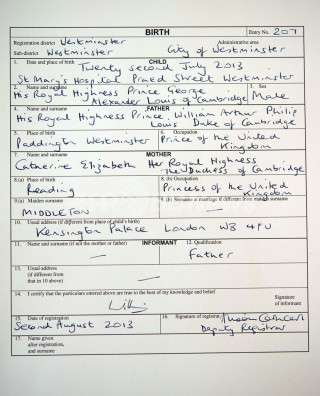 BIRTH
Entry No. 207
Registration district Westminster
Administrative area
Sub-district Westminster
City of Westminster
1. Date and place of birth
CHILD
Twenty second July 2013
St Mary's Hospital Praed Street Westminster
2. Name and surname
3. Sex
His Royal Highness Prince George
Alexander Louis of Cambridge
Male
4. Name and surname
FATHER
His Royal Highness Prince William Arthur Philip
Louis Duke of Cambridge
5. Place of birth
6. Occupation
Paddington Westminster
Prince of the United
Kingdom
7. Name and surname
MOTHER
Catherine Elizabeth Her Royal Highness
The Duchess of Cambridge
8.(a) Place of birth
8. (b) Occupation
Reading
Princess of the United
Kingdom
9.(a) Maiden surname
9. (b) Surname at marriage if different from maiden surname
MIDDLETON
—
10. Usual address (if different from place of child's birth)
Kensington Palace London W8 4PU
11. Name and surname (if not the mother or father)
INFORMANT
12. Qualification
—
Father
13. Usual address
(if different
from that
in 10 above)
—
14. I certify that the particulars entered above are true to the best of my knowledge and belief
Signature
of informant
15. Date of registration
16. Signature of registrar
Second August 2013
Deputy Registrar
17. Name given
after registration,
and surname